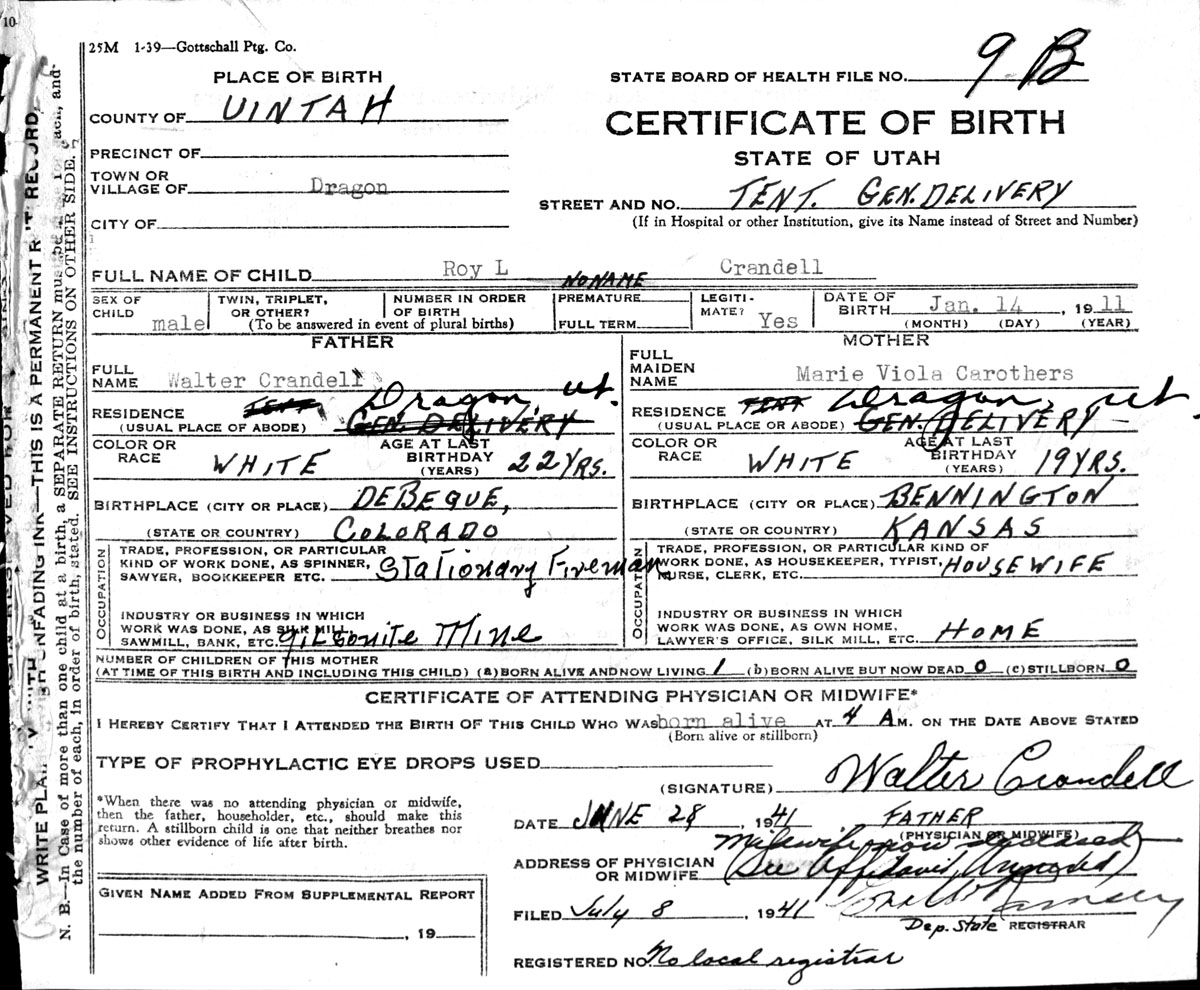 10
25M 1-39—Gottschall Ptg. Co.
PLACE OF BIRTH
STATE BOARD OF HEALTH FILE NO. 9 B
COUNTY OF UINTAH
CERTIFICATE OF BIRTH
PRECINCT OF
STATE OF UTAH
TOWN OR
VILLAGE OF Dragon
STREET AND NO. TENT. GEN. DELIVERY
CITY OF
(If in Hospital or other Institution, give its Name instead of Street and Number)
FULL NAME OF CHILD Roy L NO NAME Crandell
SEX OF CHILD male
TWIN, TRIPLET, OR OTHER?
NUMBER IN ORDER OF BIRTH
(To be answered in event of plural births)
PREMATURE
FULL TERM
LEGITI-MATE? Yes
DATE OF BIRTH Jan. 14, 1911
(MONTH) (DAY) (YEAR)
FATHER
FULL NAME Walter Crandell
RESIDENCE TENT Dragon, ut.
(USUAL PLACE OF ABODE) GEN. DELIVERY
COLOR OR RACE WHITE
AGE AT LAST BIRTHDAY (YEARS) 22 YRS.
BIRTHPLACE (CITY OR PLACE) DEBEQUE,
(STATE OR COUNTRY) COLORADO
OCCUPATION
TRADE, PROFESSION, OR PARTICULAR
KIND OF WORK DONE, AS SPINNER,
SAWYER, BOOKKEEPER ETC. Stationary Fireman
INDUSTRY OR BUSINESS IN WHICH
WORK WAS DONE, AS SILK MILL,
SAWMILL, BANK, ETC. Gilsonite Mine
MOTHER
FULL MAIDEN NAME Marie Viola Carothers
RESIDENCE TENT Dragon, ut.
(USUAL PLACE OR ABODE) GEN. DELIVERY
COLOR OR RACE WHITE
AGE AT LAST BIRTHDAY (YEARS) 19 YRS.
BIRTHPLACE (CITY OR PLACE) BENNINGTON
(STATE OR COUNTRY) KANSAS
OCCUPATION
TRADE, PROFESSION, OR PARTICULAR KIND OF
WORK DONE, AS HOUSEKEEPER, TYPIST,
NURSE, CLERK, ETC. HOUSEWIFE
INDUSTRY OR BUSINESS IN WHICH
WORK WAS DONE, AS OWN HOME,
LAWYER'S OFFICE, SILK MILL, ETC. HOME
NUMBER OF CHILDREN OF THIS MOTHER
(AT TIME OF THIS BIRTH AND INCLUDING THIS CHILD) (a) BORN ALIVE AND NOW LIVING 1 (b) BORN ALIVE BUT NOW DEAD 0 (c) STILLBORN 0
CERTIFICATE OF ATTENDING PHYSICIAN OR MIDWIFE*
I HEREBY CERTIFY THAT I ATTENDED THE BIRTH OF THIS CHILD WHO WAS born alive AT 4 A M. ON THE DATE ABOVE STATED
(Born alive or stillborn)
TYPE OF PROPHYLACTIC EYE DROPS USED
(SIGNATURE) Walter Crandell
*When there was no attending physician or midwife,
then the father, householder, etc., should make this
return. A stillborn child is one that neither breathes nor
shows other evidence of life after birth.
DATE JUNE 28, 1941, FATHER
(PHYSICIAN OR MIDWIFE)
Midwife now deceased
ADDRESS OF PHYSICIAN OR MIDWIFE (See Affidavit,
GIVEN NAME ADDED FROM SUPPLEMENTAL REPORT
, 19
FILED July 8, 1941 Ramsey
Dep. State REGISTRAR
REGISTERED NO. No local registrar
N. B.—In Case of more than one child at a birth, a SEPARATE RETURN must be for each, and
the number of each, in order of birth, stated. SEE INSTRUCTIONS ON OTHER SIDE.
UNFADING INK—THIS IS A PERMANENT RECORD